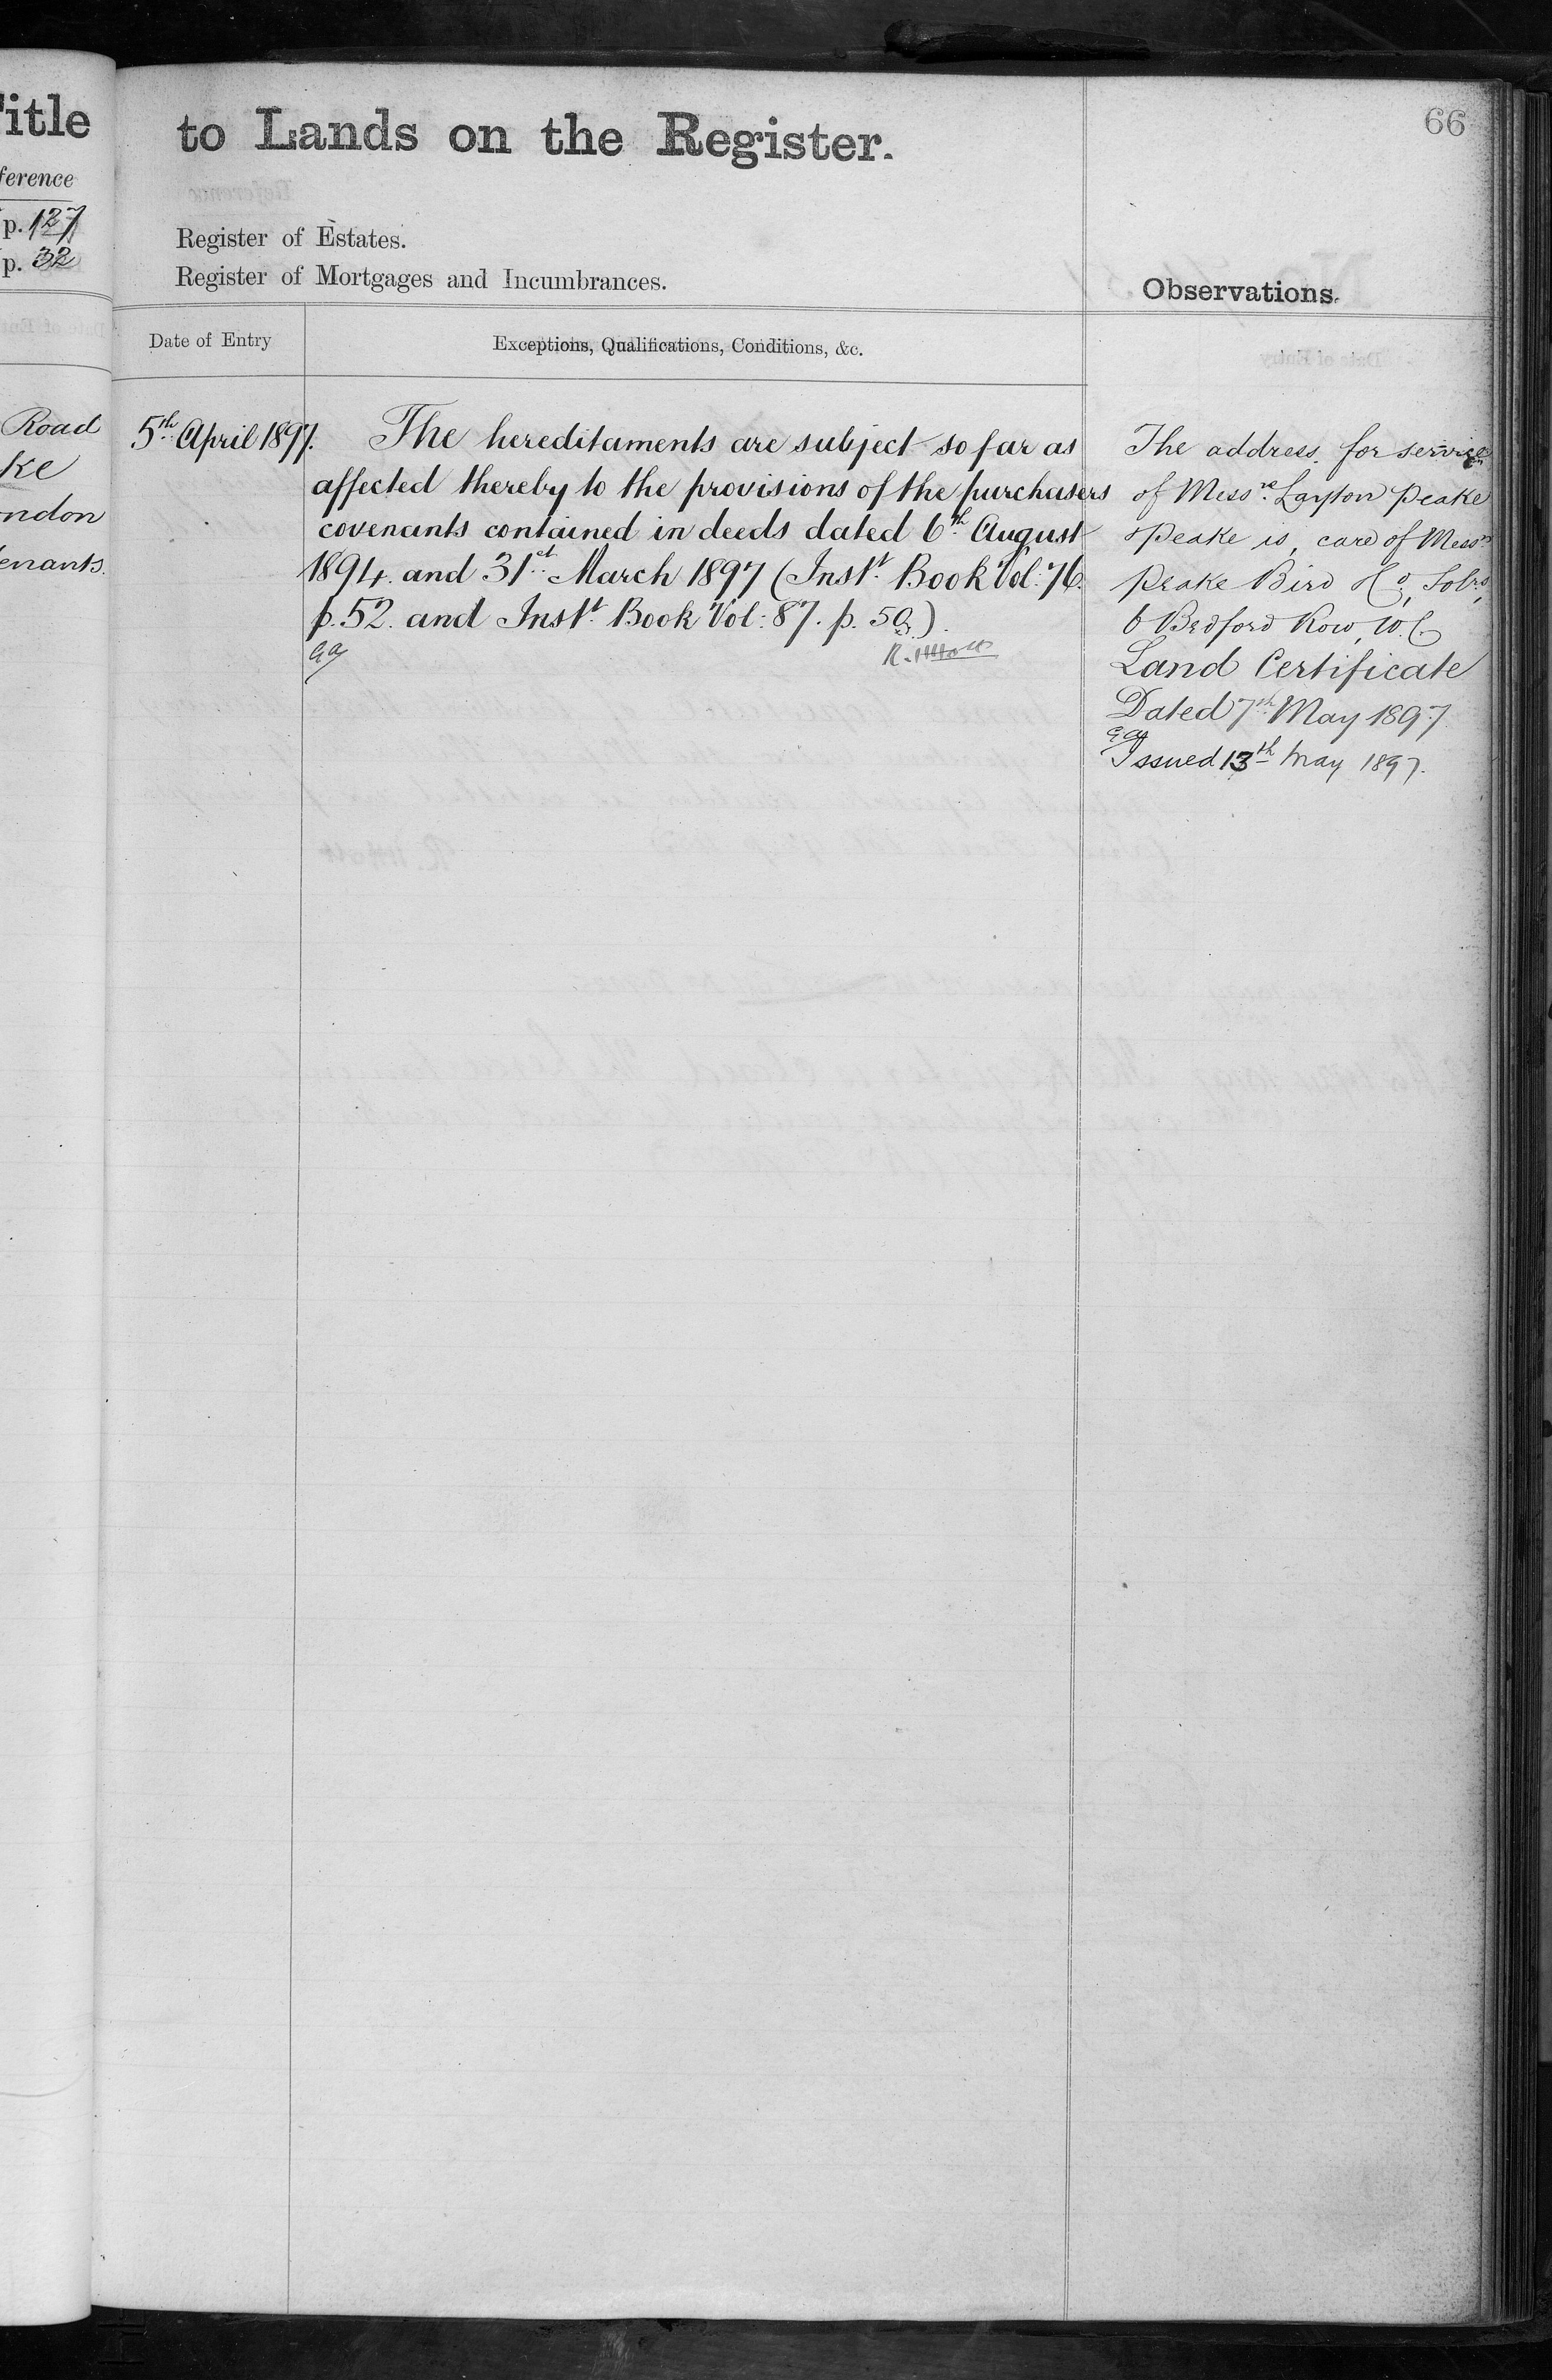 itle
ference
p. 127
p. 32
Road
ke
ondon
enants.
to Lands on the Register.
66
Register of Estates.
Register of Mortgages and Incumbrances.
Observations.
Date of Entry
Exceptions, Qualifications, Conditions, &c.
5th April 1897.
The hereditaments are subject so far as
affected thereby to the provisions of the purchasers
covenants contained in deeds dated 6th August
1894. and 31st March 1897 (Inst. Book Vol: 76.
p. 52. and Inst. Book Vol: 87. p. 50.).
The address for service
of Messrs. Layton Peake
& Peake is, care of Messrs
Peake Bird & Co, Solrs,
6 Bedford Row, W.C.
Land Certificate
Dated 7th May 1897
Issued 13th May 1897.